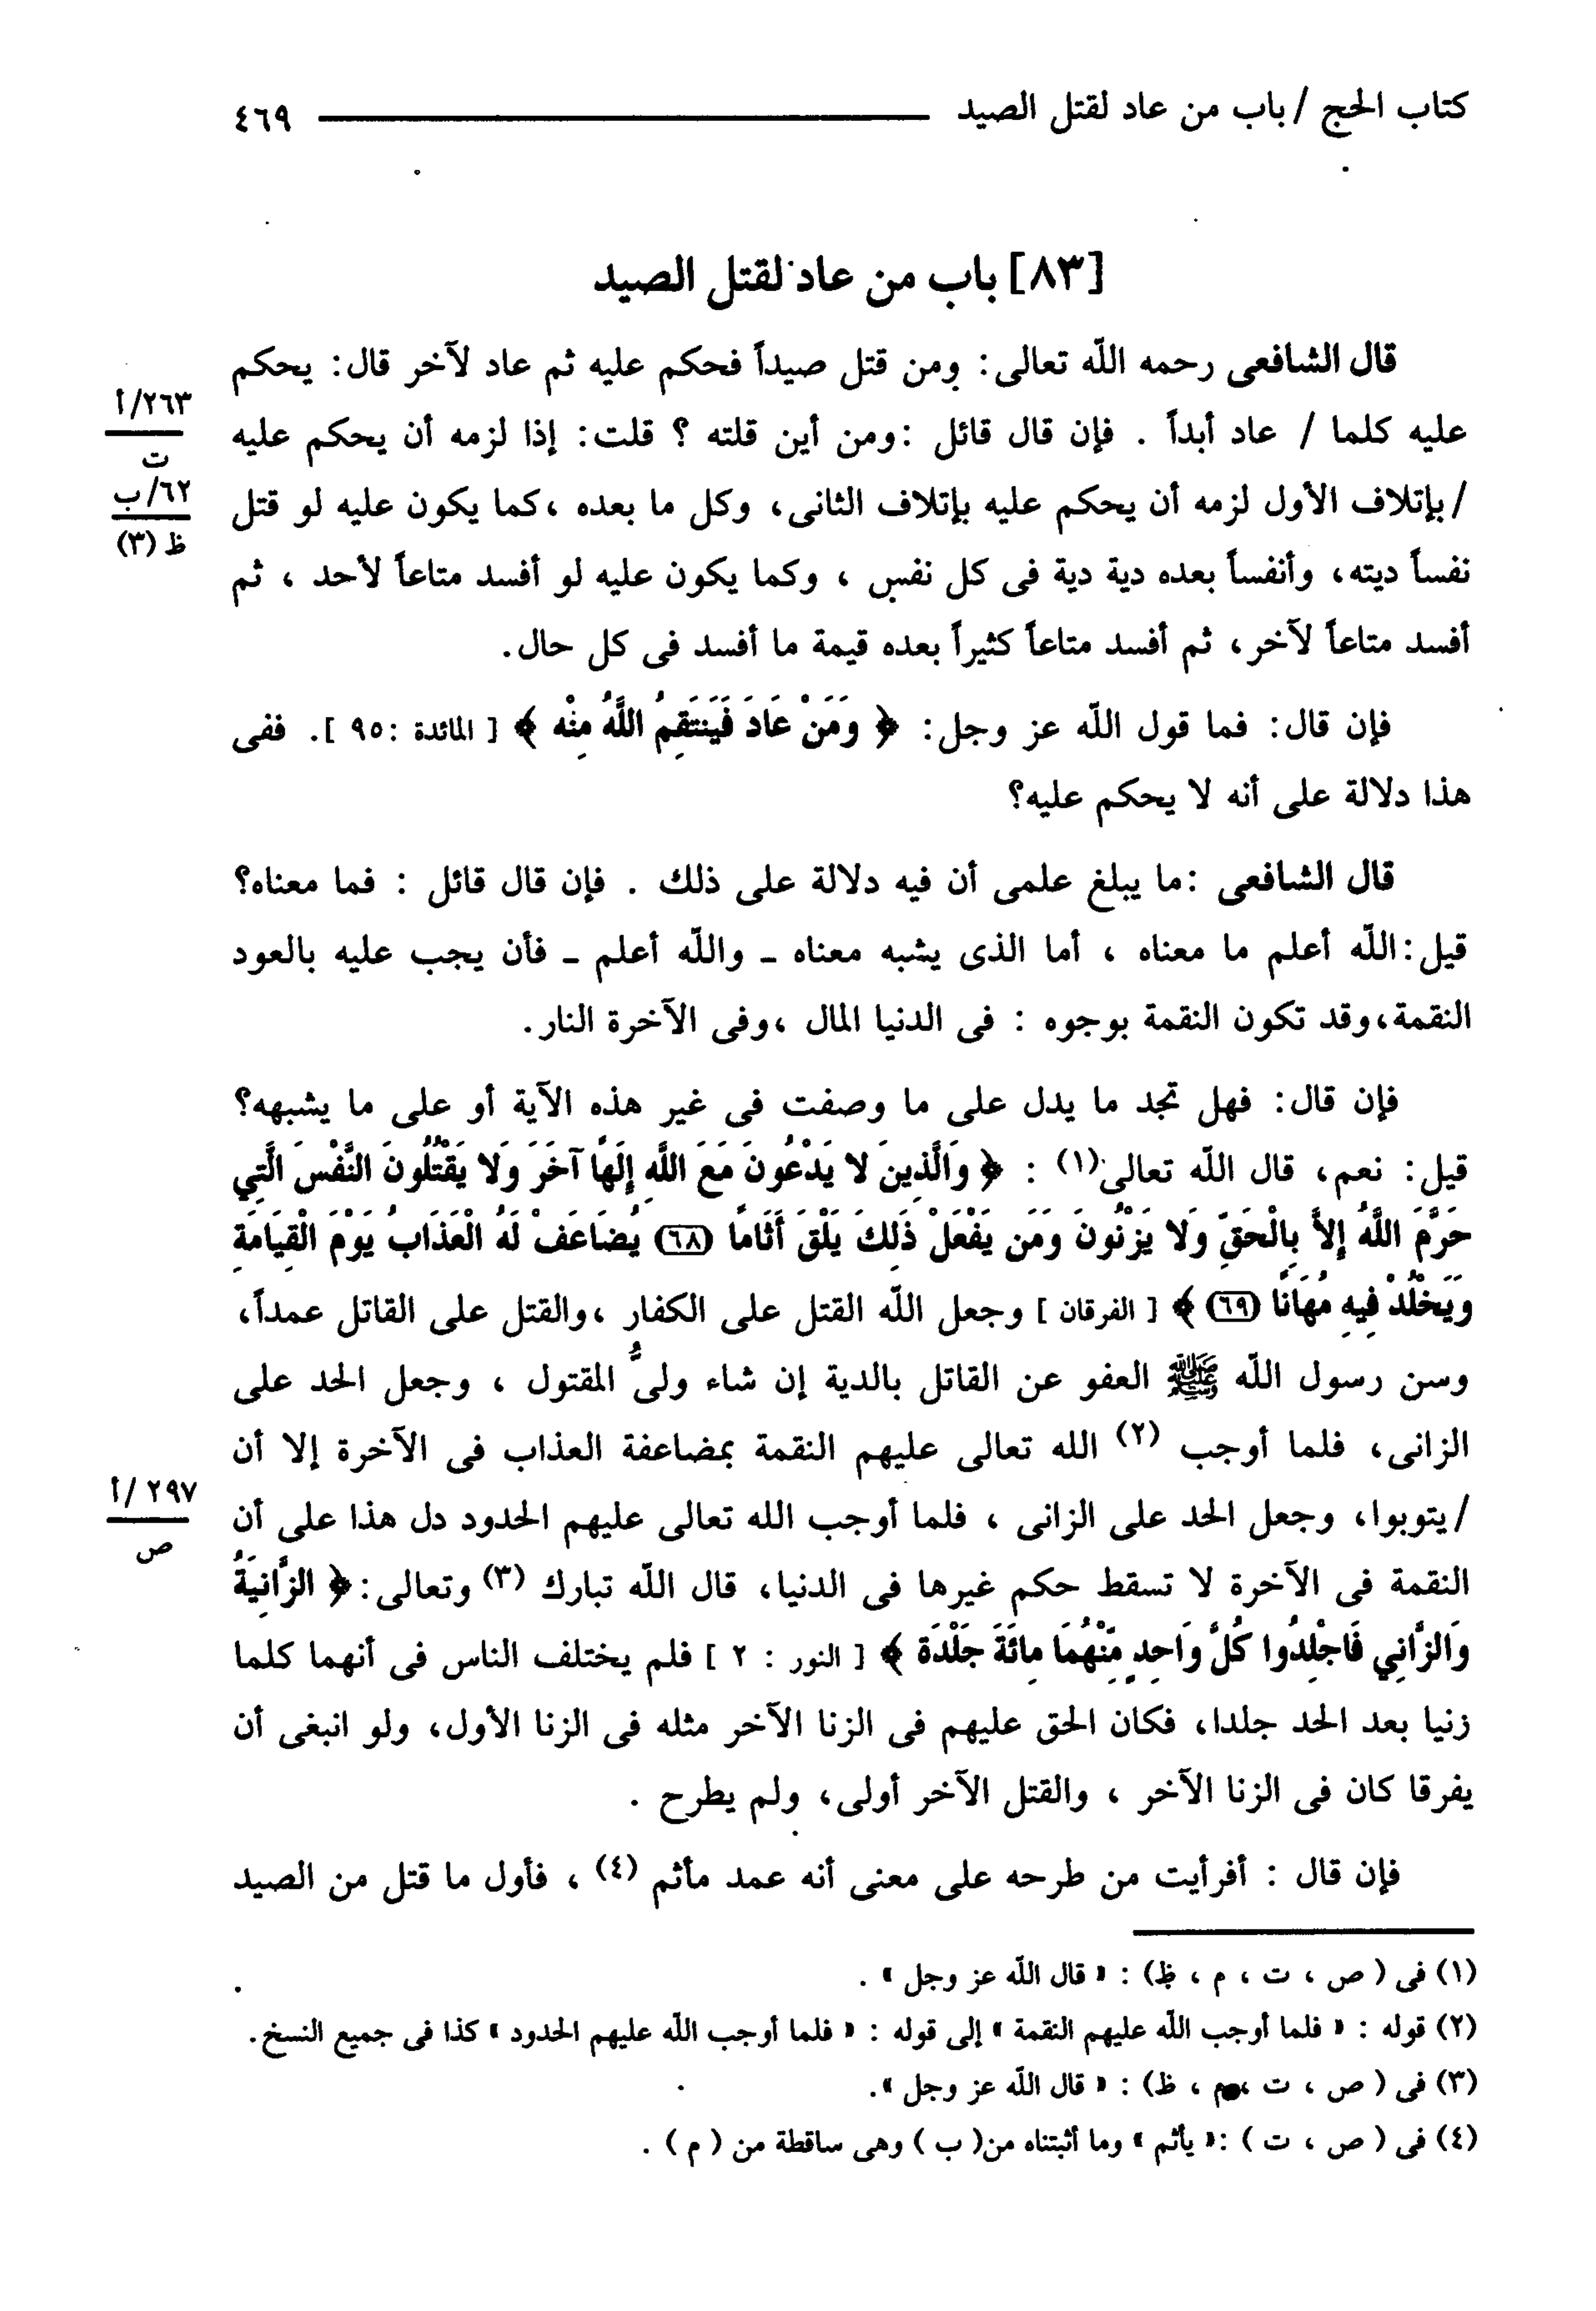 كتاب الحج / باب من عاد لقتل الصيد ٤٦٩
[٨٣] باب من عاد لقتل الصيد
قال الشافعى رحمه اللّه تعالى: ومن قتل صيداً فحكم عليه ثم عاد لآخر قال: يحكم
عليه كلما / عاد أبداً . فإن قال قائل :ومن أين قلته ؟ قلت: إذا لزمه أن يحكم عليه
/ بإتلاف الأول لزمه أن يحكم عليه بإتلاف الثانى، وكل ما بعده ،كما يكون عليه لو قتل
نفساً ديته، وأنفساً بعده دية دية فى كل نفس ، وكما يكون عليه لو أفسد متاعاً لأحد ، ثم
أفسد متاعاً لآخر، ثم أفسد متاعاً كثيراً بعده قيمة ما أفسد فى كل حال.
٢٦٣/أ
ت
٦٢/ب
ظ (٣)
فإن قال: فما قول اللّه عز وجل: ﴿ وَمَنْ عَادَ فَيَنتَقِمُ اللَّهُ مِنْه ﴾ [ المائدة :٩٥ ]. ففى
هذا دلالة على أنه لا يحكم عليه؟
قال الشافعى :ما يبلغ علمى أن فيه دلالة على ذلك . فإن قال قائل : فما معناه؟
قيل:اللّه أعلم ما معناه ، أما الذى يشبه معناه ـ واللّه أعلم ـ فأن يجب عليه بالعود
النقمة،وقد تكون النقمة بوجوه : فى الدنيا المال ،وفى الآخرة النار.
فإن قال: فهل تجد ما يدل على ما وصفت فى غير هذه الآية أو على ما يشبهه؟
قيل: نعم، قال اللّه تعالى(١) : ﴿ وَالَّذِينَ لا يَدْعُونَ مَعَ اللَّهِ إِلَهًا آخَرَ وَلا يَقْتُلُونَ النَّفْسَ الَّتِي
حَرَّمَ اللَّهُ إِلاَّ بِالْحَقِّ وَلا يَزْنُونَ وَمَن يَفْعَلْ ذَلِكَ يَلْقَ أَثَامًا (٦٨) يُضَاعَفْ لَهُ الْعَذَابُ يَوْمَ الْقِيَامَةِ
وَيَخْلُدْ فِيهِ مُهَانًا (٦٩) ﴾ [ الفرقان ] وجعل اللّه القتل على الكفار ،والقتل على القاتل عمداً،
وسن رسول اللّه ﷺ العفو عن القاتل بالدية إن شاء ولىُّ المقتول ، وجعل الحد على
الزانى، فلما أوجب (٢) الله تعالى عليهم النقمة بمضاعفة العذاب فى الآخرة إلا أن
/ يتوبوا، وجعل الحد على الزانى ، فلما أوجب الله تعالى عليهم الحدود دل هذا على أن
٢٩٧ /أ
ص
النقمة فى الآخرة لا تسقط حكم غيرها فى الدنيا، قال اللّه تبارك (٣) وتعالى: ﴿ الزَّانِيَةُ
وَالزَّانِي فَاجْلِدُوا كُلَّ وَاحِدٍ مِّنْهُمَا مِائَةَ جَلْدَة ﴾ [ النور : ٢ ] فلم يختلف الناس فى أنهما كلما
زنيا بعد الحد جلدا، فكان الحق عليهم فى الزنا الآخر مثله فى الزنا الأول، ولو انبغى أن
يفرقا كان فى الزنا الآخر ، والقتل الآخر أولى، ولم يطرح .
فإن قال : أفرأيت من طرحه على معنى أنه عمد مأثم (٤) ، فأول ما قتل من الصيد
(١) فى ( ص ، ت ، م ، ظ) : « قال اللّه عز وجل » .
(٢) قوله : « فلما أوجب اللّه عليهم النقمة » إلى قوله : « فلما أوجب اللّه عليهم الحدود » كذا فى جميع النسخ.
(٣) فى ( ص ، ت ، م ، ظ) : « قال اللّه عز وجل ».
(٤) فى ( ص ، ت ) :« يأثم » وما أثبتناه من( ب ) وهى ساقطة من ( م ) .